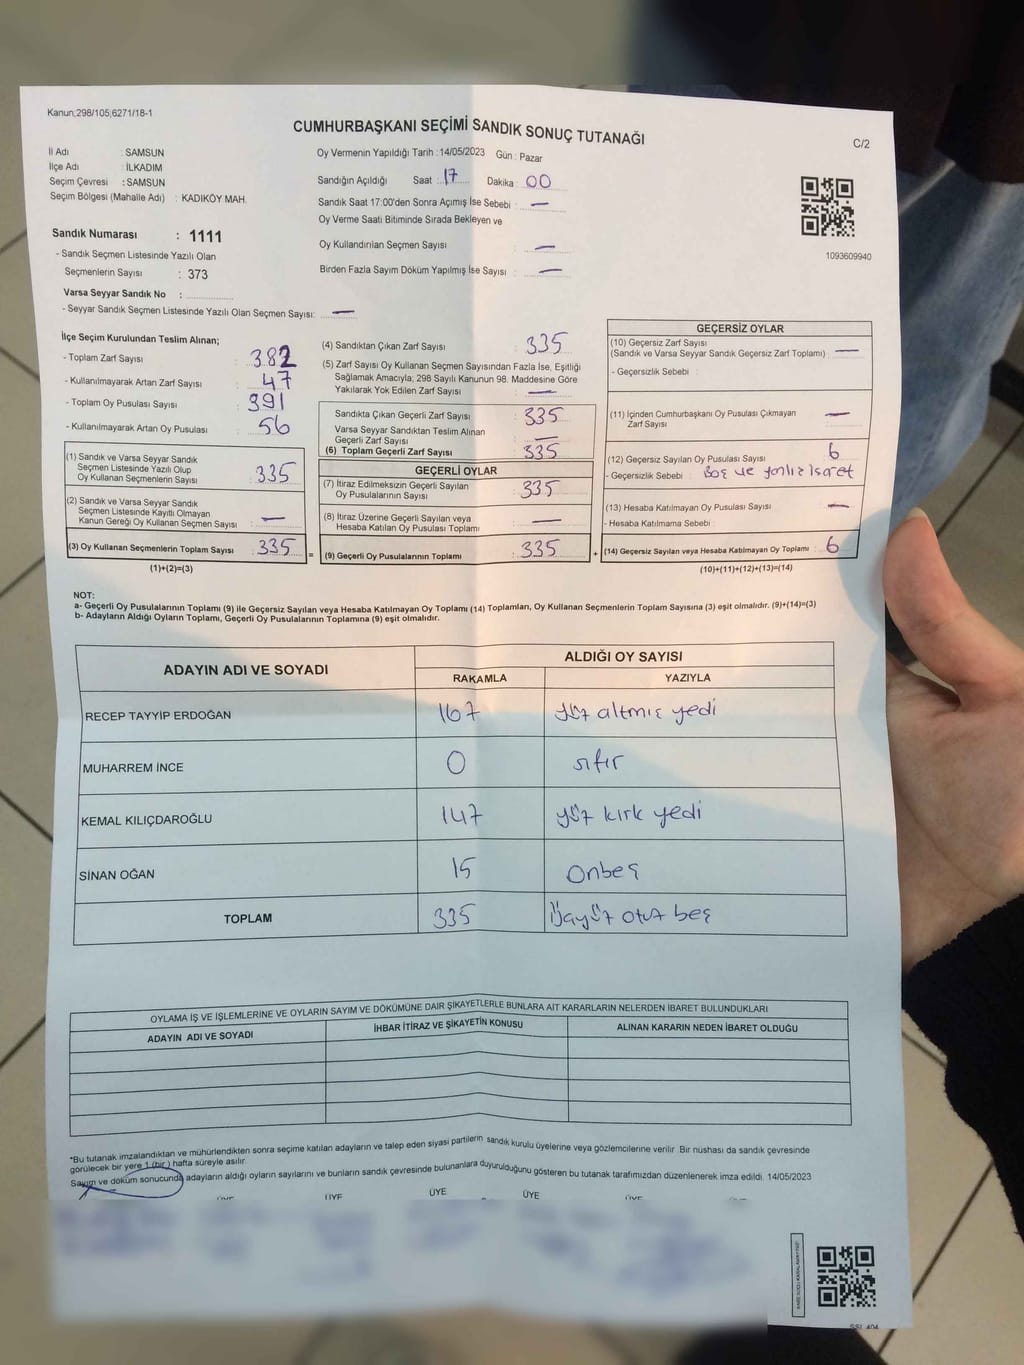 Kanun;298/105;6271/18-1
CUMHURBAŞKANI SEÇİMİ SANDIK SONUÇ TUTANAĞI
C/2
İl Adı : SAMSUN
İlçe Adı : İLKADIM
Seçim Çevresi : SAMSUN
Seçim Bölgesi (Mahalle Adı) : KADIKÖY MAH.
Sandık Numarası : 1111
- Sandık Seçmen Listesinde Yazılı Olan
Seçmenlerin Sayısı : 373
Varsa Seyyar Sandık No :
- Seyyar Sandık Seçmen Listesinde Yazılı Olan Seçmen Sayısı: —
Oy Vermenin Yapıldığı Tarih : 14/05/2023 Gün : Pazar
Sandığın Açıldığı Saat : 17 Dakika : 00
Sandık Saat 17:00'den Sonra Açımış İse Sebebi : —
Oy Verme Saati Bitiminde Sırada Bekleyen ve
Oy Kullandırılan Seçmen Sayısı : —
Birden Fazla Sayım Döküm Yapılmış İse Sayısı : —
1093609940
İlçe Seçim Kurulundan Teslim Alınan;
- Toplam Zarf Sayısı : 382
- Kullanılmayarak Artan Zarf Sayısı : 47
- Toplam Oy Pusulası Sayısı : 391
- Kullanılmayarak Artan Oy Pusulası : 56
(1) Sandık ve Varsa Seyyar Sandık
Seçmen Listesinde Yazılı Olup
Oy Kullanan Seçmenlerin Sayısı : 335
(2) Sandık ve Varsa Seyyar Sandık
Seçmen Listesinde Kayıtlı Olmayan
Kanun Gereği Oy Kullanan Seçmen Sayısı : —
(3) Oy Kullanan Seçmenlerin Toplam Sayısı : 335
(1)+(2)=(3)
=
(4) Sandıktan Çıkan Zarf Sayısı : 335
(5) Zarf Sayısı Oy Kullanan Seçmen Sayısından Fazla İse, Eşitliği
Sağlamak Amacıyla; 298 Sayılı Kanunun 98. Maddesine Göre
Yakılarak Yok Edilen Zarf Sayısı : —
Sandıkta Çıkan Geçerli Zarf Sayısı : 335
Varsa Seyyar Sandıktan Teslim Alınan
Geçerli Zarf Sayısı : —
(6) Toplam Geçerli Zarf Sayısı : 335
GEÇERLİ OYLAR
(7) İtiraz Edilmeksizin Geçerli Sayılan
Oy Pusulalarının Sayısı : 335
(8) İtiraz Üzerine Geçerli Sayılan veya
Hesaba Katılan Oy Pusulası Toplamı : —
(9) Geçerli Oy Pusulalarının Toplamı : 335
+
GEÇERSİZ OYLAR
(10) Geçersiz Zarf Sayısı
(Sandık ve Varsa Seyyar Sandık Geçersiz Zarf Toplamı) : —
- Geçersizlik Sebebi :
(11) İçinden Cumhurbaşkanı Oy Pusulası Çıkmayan
Zarf Sayısı : —
(12) Geçersiz Sayılan Oy Pusulası Sayısı : 6
- Geçersizlik Sebebi : Boş ve yanlız işaret
(13) Hesaba Katılmayan Oy Pusulası Sayısı : —
- Hesaba Katılmama Sebebi :
(14) Geçersiz Sayılan veya Hesaba Katılmayan Oy Toplamı : 6
(10)+(11)+(12)+(13)=(14)
NOT:
a- Geçerli Oy Pusulalarının Toplamı (9) ile Geçersiz Sayılan veya Hesaba Katılmayan Oy Toplamı (14) Toplamları, Oy Kullanan Seçmenlerin Toplam Sayısına (3) eşit olmalıdır. (9)+(14)=(3)
b- Adayların Aldığı Oyların Toplamı, Geçerli Oy Pusulalarının Toplamına (9) eşit olmalıdır.
ADAYIN ADI VE SOYADI
ALDIĞI OY SAYISI
RAKAMLA YAZIYLA
RECEP TAYYİP ERDOĞAN 167 yüz altmış yedi
MUHARREM İNCE 0 sıfır
KEMAL KILIÇDAROĞLU 147 yüz kırk yedi
SİNAN OĞAN 15 Onbeş
TOPLAM 335 Üçyüz otuz beş
OYLAMA İŞ VE İŞLEMLERİNE VE OYLARIN SAYIM VE DÖKÜMÜNE DAİR ŞİKAYETLERLE BUNLARA AİT KARARLARIN NELERDEN İBARET BULUNDUKLARI
ADAYIN ADI VE SOYADI İHBAR İTİRAZ VE ŞİKAYETİN KONUSU ALINAN KARARIN NEDEN İBARET OLDUĞU
"Bu tutanak imzalandıktan ve mühürlendikten sonra seçime katılan adayların ve talep eden siyasi partilerin sandık kurulu üyelerine veya gözlemcilerine verilir. Bir nüshası da sandık çevresinde
görülecek bir yere 1 (bir ) hafta süreyle asılır.
Sayım ve döküm sonucunda adayların aldığı oyların sayılarını ve bunların sandık çevresinde bulunanlara duyurulduğunu gösteren bu tutanak tarafımızdan düzenlenerek imza edildi. 14/05/2023
ÜYE ÜYE ÜYE ÜYE ÜYE